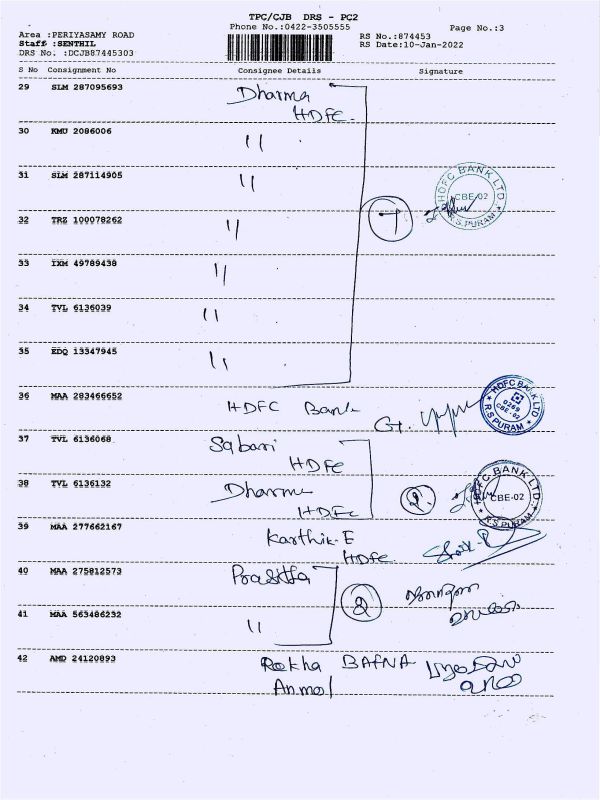 TPC/CJB DRS - PC2
Phone No.:0422-3505555
Page No.:3
Area :PERIYASAMY ROAD
Staff :SENTHIL
DRS No. :DCJB87445303
RS No.:874453
RS Date:10-Jan-2022
S No Consignment No Consignee Details Signature
29 SLM 287095693 Dharma
HDFC.
30 KMU 2086006 "
31 SLM 287114905 "
HDFC BANK LTD. CBE-02 R.S.PURAM
32 TRZ 100078262 " 7
33 IXM 49789438 "
34 TVL 6136039 "
35 EDQ 13347945 "
36 MAA 283466652 HDFC Bank G.
HDFC BANK LTD 0269 CBE-02 R.S PURAM
37 TVL 6136068 Sabari
HDFC
38 TVL 6136132 Dharma
HDFC
2
HDFC BANK LTD. CBE-02 R.S.PURAM
39 MAA 277662167 Karthik.E
HDFC
40 MAA 275812573
2
41 MAA 563486232 "
42 AMD 24120893 Rekha BAFNA
Anmol